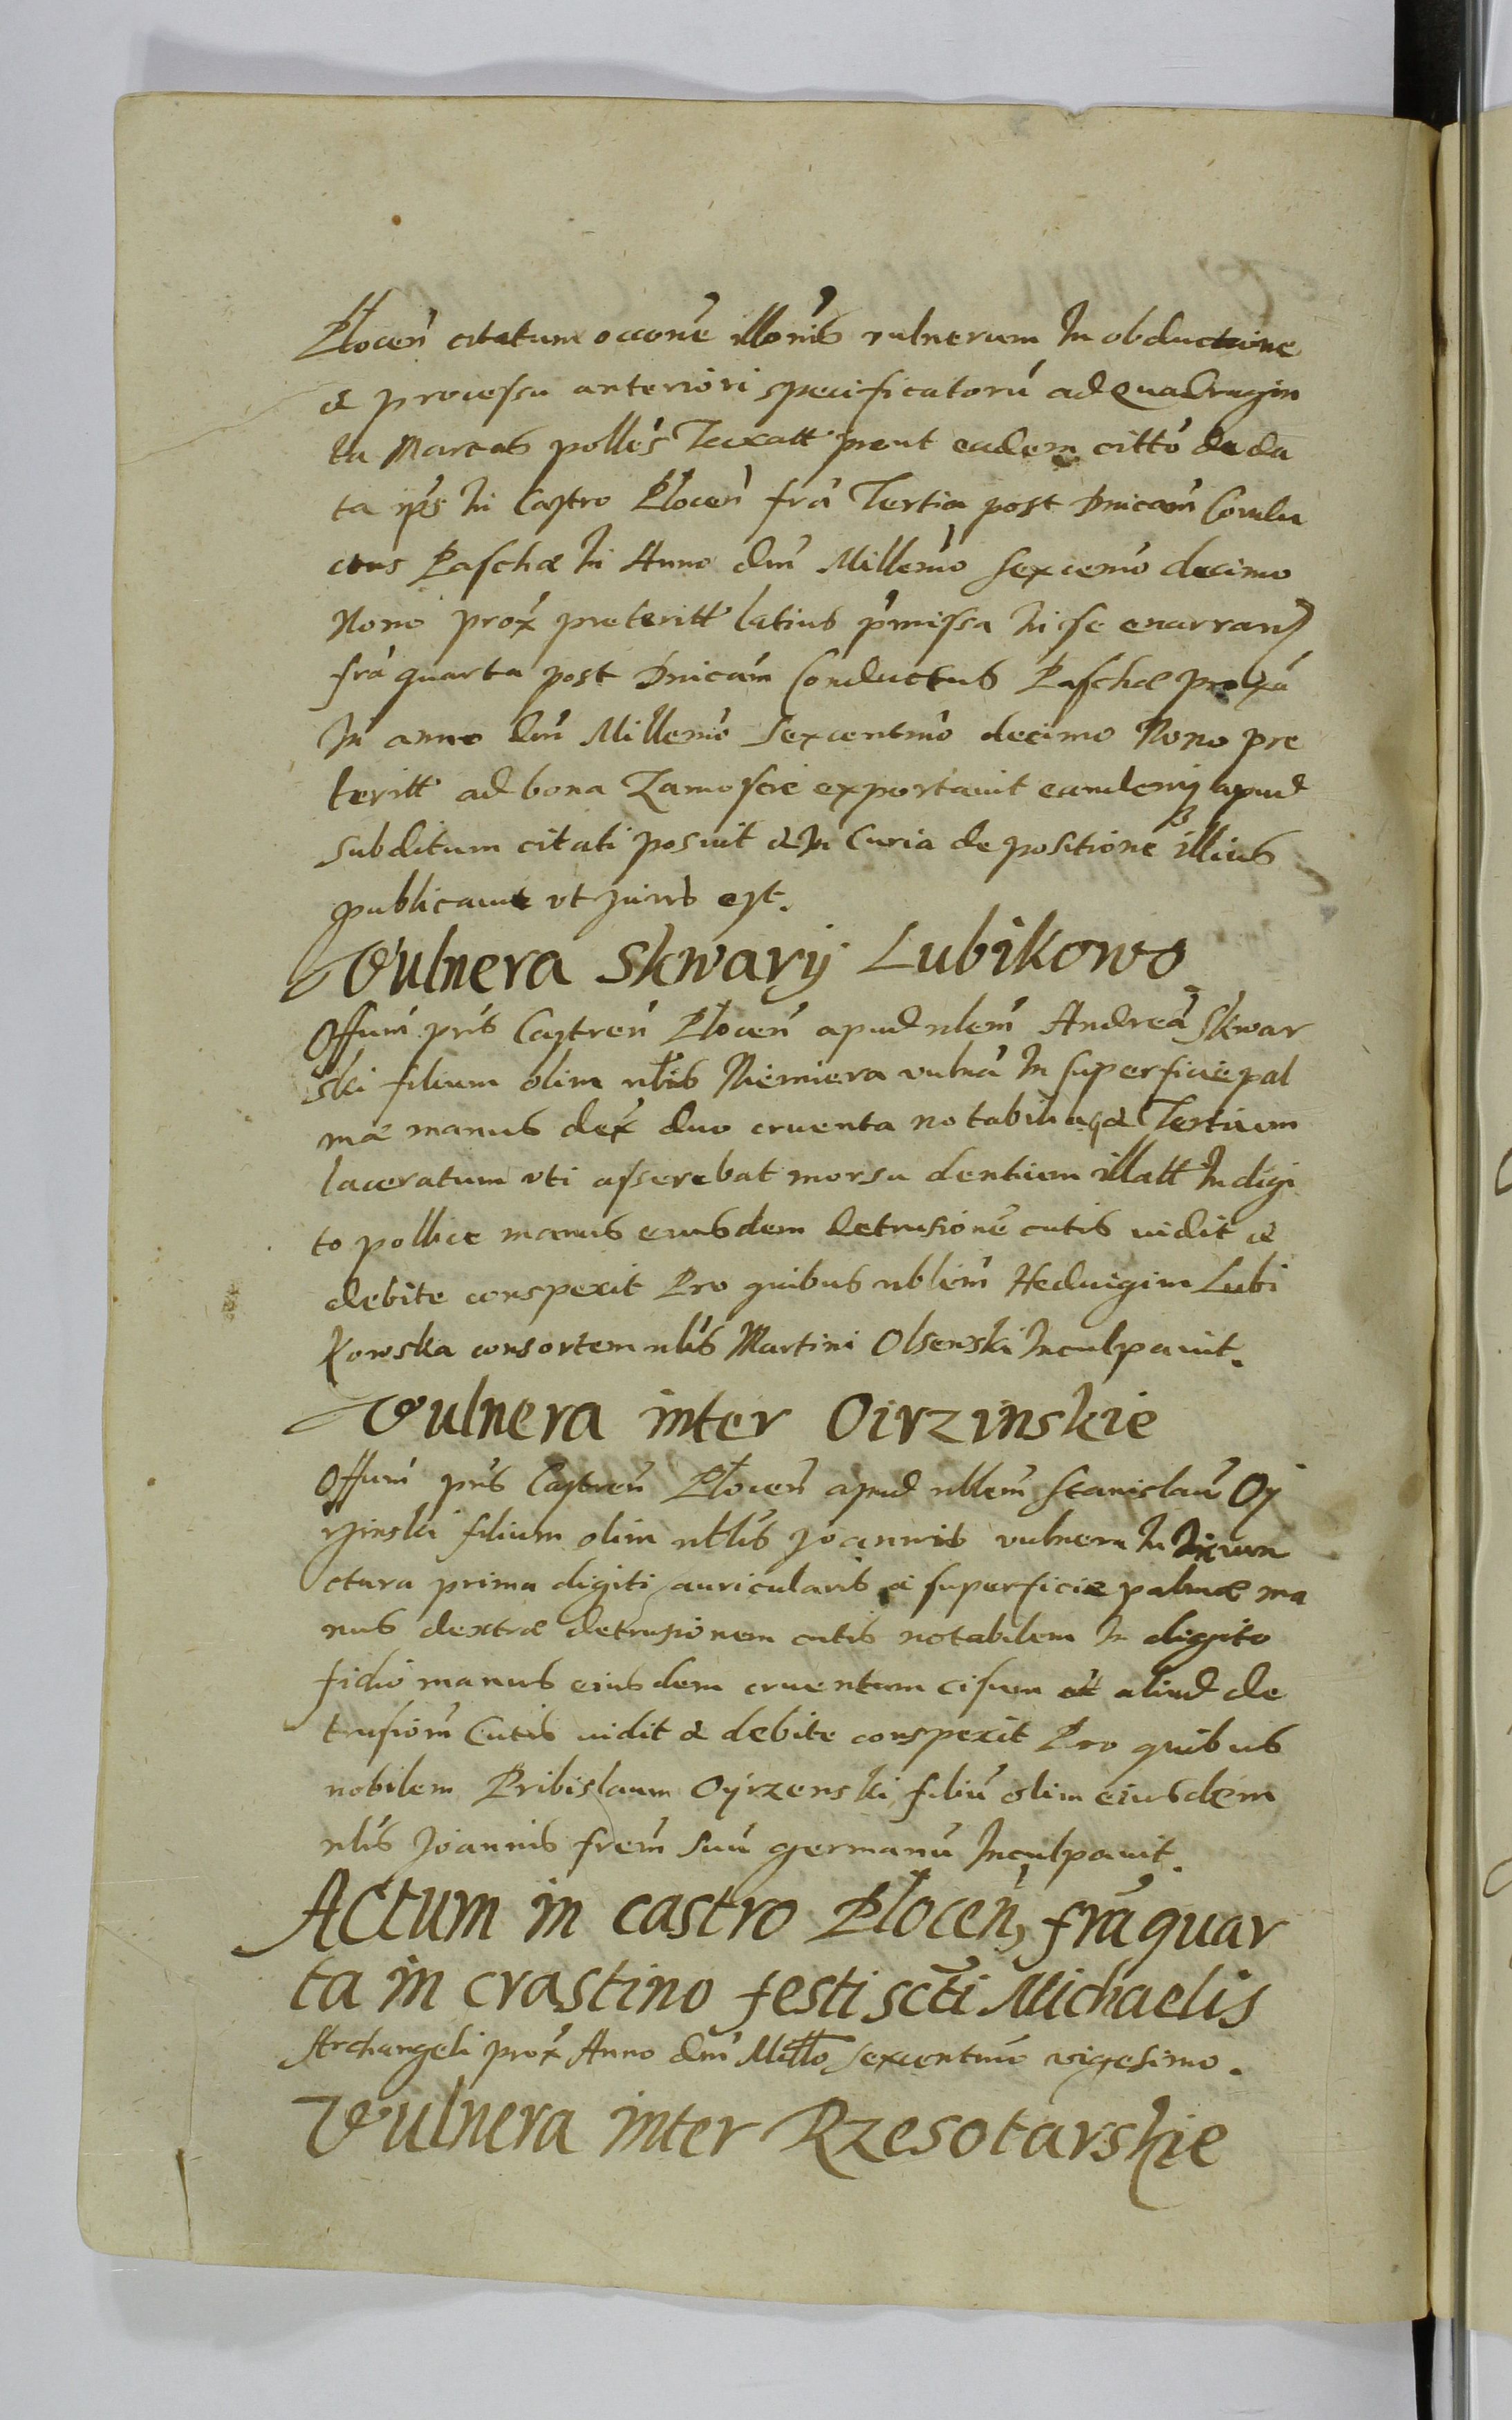 Plocen̄ citatum occone͂ illonis vulnerum In obductione
& processu anteriori specificatorú ad Quadragin
ta Marcas polles Taxatt prout eadem citto de da
ta ips In Castro Plocen̄ fra͂ Tertia post Dnicam Condu
ctus Paschæ In Anno dm̃ Millemo sexcemo decimo
Nono prox preteritt latius pmissa In se enarran)
fra͂ quarta post Dnicam Conductus Paschæ proxa
In anno dm̃ Millemo Sexcentmo decimo Nono pre
teritt ad bona Zamoscie exportavit eandemq apud
subditum citati posuit & In Curia de positione illius
publicavit vt Juris est.
Vulnera Skwarÿ Lubikowo
Offum pns Castren̄ Plocen̄ apud nlem̄ Andrea͂ Skwar
ski filium olim nlis Niemiera vulna In superficie pal
mæ manus dex duo cruenta notabilia & Tertium
laceratum vti asserebat morsu dentium illatt In digi
to pollice manus eiusdem detrusione͂ cutis vidit &
debite conspexit Pro quibus nblem̄ Heduigim Lubi
Kowska consortem nlis Martini Olsenski Inculpavit.
Vulnera inter Oirzinskie
Offum pns Castren̄ Plocen̄ apud nblem̄ Stanislau͂ Oy
rzinski filium olim nblis Joannis vulnera In Iniun
ctura prima digiti auricularis a superficie palmæ ma
nus dextræ detrusionem cutis notabilem In digito
fidio manus eiusdem cruentum cisum et aliud de
trusiom̄ Cutis vidit & debite conspexit Pro quibus
nobilem Pribislaum Oÿrzenski filiu͂ olim eiusdem
nlis Joannis frem̄ suu͂ germanu͂ Inculpavit.
ACtum in castro Plocen̄, fra͂ quar
ta in crastino festi scti Michaelis
Archangeli prox Anno dm̃ Millo sexcentmo vigesimo.
Vulnera inter Rzesotarskie